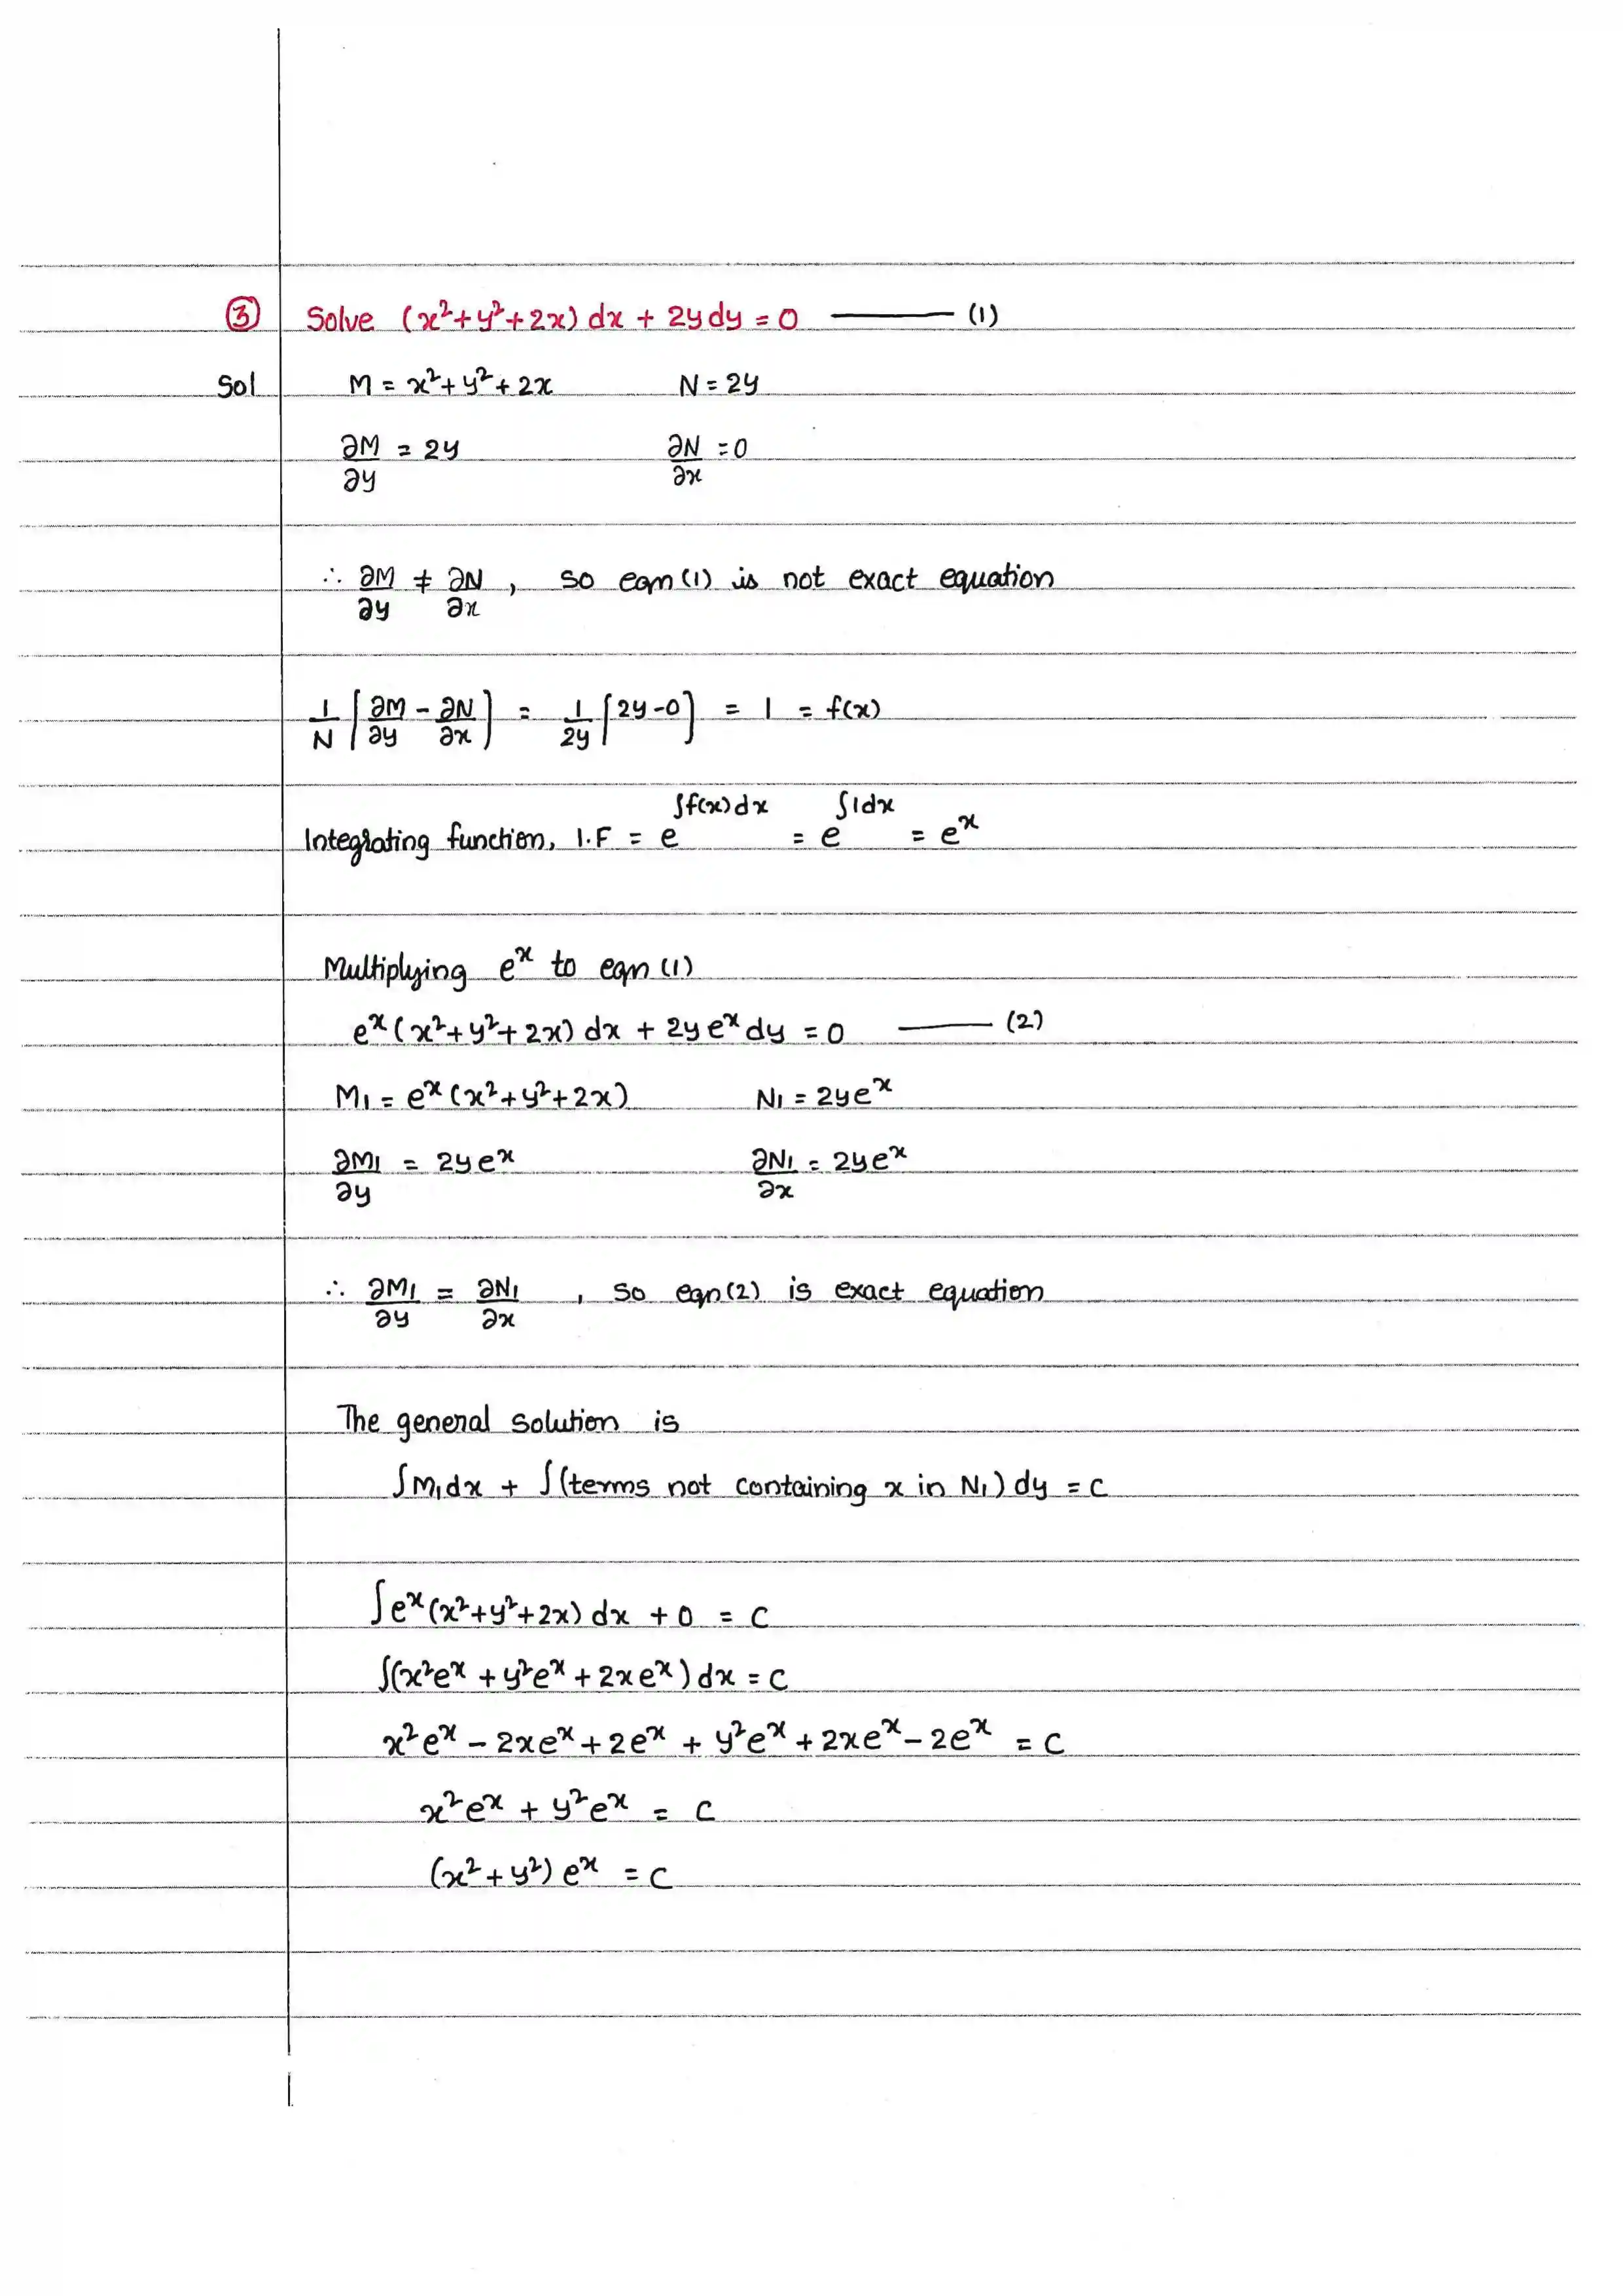 ③ Solve (x²+y²+2x) dx + 2y dy = 0 ——— (1)
Sol M = x²+y²+2x N = 2y
∂M/∂y = 2y ∂N/∂x = 0
∴ ∂M/∂y ≠ ∂N/∂x , so eqn (1) is not exact equation
1/N [∂M/∂y - ∂N/∂x] = 1/2y [2y-0] = 1 = f(x)
Integrating function, I.F = e^∫f(x)dx = e^∫1dx = e^x
Multiplying e^x to eqn (1)
e^x (x²+y²+2x) dx + 2y e^x dy = 0 ——— (2)
M₁ = e^x (x²+y²+2x) N₁ = 2ye^x
∂M₁/∂y = 2ye^x ∂N₁/∂x = 2ye^x
∴ ∂M₁/∂y = ∂N₁/∂x , so eqn (2) is exact equation
The general solution is
∫M₁dx + ∫(terms not containing x in N₁) dy = c
∫e^x (x²+y²+2x) dx + 0 = c
∫(x²e^x + y²e^x + 2xe^x) dx = c
x²e^x - 2xe^x + 2e^x + y²e^x + 2xe^x - 2e^x = c
x²e^x + y²e^x = c
(x²+y²) e^x = c